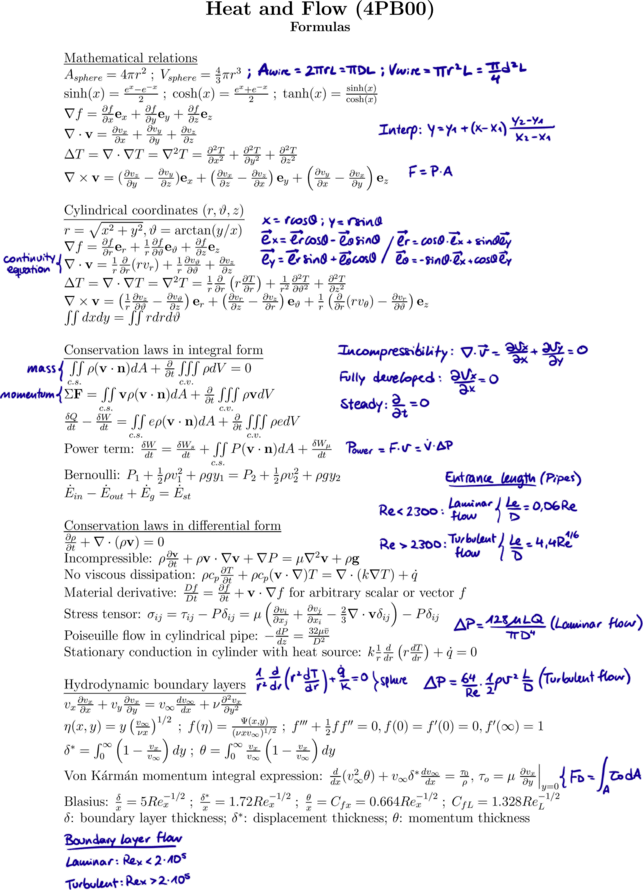 Heat and Flow (4PB00)
Formulas
Mathematical relations
A_sphere = 4πr² ; V_sphere = 4/3 πr³ ; A_wire = 2πrL = πDL ; V_wire = πr²L = π/4 d²L
sinh(x) = (e^x − e^−x)/2 ; cosh(x) = (e^x + e^−x)/2 ; tanh(x) = sinh(x)/cosh(x)
∇f = ∂f/∂x e_x + ∂f/∂y e_y + ∂f/∂z e_z
∇ · v = ∂v_x/∂x + ∂v_y/∂y + ∂v_z/∂z
Interp: y = y₁ + (x − x₁) (y₂ − y₁)/(x₂ − x₁)
ΔT = ∇ · ∇T = ∇²T = ∂²T/∂x² + ∂²T/∂y² + ∂²T/∂z²
∇ × v = (∂v_z/∂y − ∂v_y/∂z) e_x + (∂v_x/∂z − ∂v_z/∂x) e_y + (∂v_y/∂x − ∂v_x/∂y) e_z
F = P · A
Cylindrical coordinates (r, ϑ, z)
r = √(x² + y²), ϑ = arctan(y/x)
x = r cosθ ; y = r sinθ
∇f = ∂f/∂r e_r + 1/r ∂f/∂ϑ e_ϑ + ∂f/∂z e_z
e_x = e_r cosθ − e_θ sinθ / e_r = cosθ · e_x + sinθ e_y
e_y = e_r sinθ + e_θ cosθ / e_θ = −sinθ · e_x + cosθ e_y
continuity equation { ∇ · v = 1/r ∂/∂r (rv_r) + 1/r ∂v_ϑ/∂ϑ + ∂v_z/∂z
ΔT = ∇ · ∇T = ∇²T = 1/r ∂/∂r (r ∂T/∂r) + 1/r² ∂²T/∂ϑ² + ∂²T/∂z²
∇ × v = (1/r ∂v_z/∂ϑ − ∂v_ϑ/∂z) e_r + (∂v_r/∂z − ∂v_z/∂r) e_ϑ + 1/r (∂/∂r (rv_θ) − ∂v_r/∂ϑ) e_z
∬ dxdy = ∬ rdrdϑ
Conservation laws in integral form
Incompressibility: ∇ · v = ∂v_x/∂x + ∂v_y/∂y = 0
mass { ∬_c.s. ρ(v · n)dA + ∂/∂t ∭_c.v. ρdV = 0
Fully developed: ∂v_x/∂x = 0
momentum { ΣF = ∬_c.s. vρ(v · n)dA + ∂/∂t ∭_c.v. ρvdV
Steady: ∂/∂t = 0
δQ/dt − δW/dt = ∬_c.s. eρ(v · n)dA + ∂/∂t ∭_c.v. ρedV
Power term: δW/dt = δW_s/dt + ∬_c.s. P(v · n)dA + δW_μ/dt
Power = F · v = V̇ · ΔP
Bernoulli: P₁ + 1/2 ρv₁² + ρgy₁ = P₂ + 1/2 ρv₂² + ρgy₂
Ė_in − Ė_out + Ė_g = Ė_st
Entrance length (Pipes)
Re < 2300: Laminar flow { Le/D = 0,06Re
Re > 2300: Turbulent flow { Le/D = 4,4Re^1/6
Conservation laws in differential form
∂ρ/∂t + ∇ · (ρv) = 0
Incompressible: ρ ∂v/∂t + ρv · ∇v + ∇P = μ∇²v + ρg
No viscous dissipation: ρc_p ∂T/∂t + ρc_p(v · ∇)T = ∇ · (k∇T) + q̇
Material derivative: Df/Dt = ∂f/∂t + v · ∇f for arbitrary scalar or vector f
Stress tensor: σ_ij = τ_ij − Pδ_ij = μ (∂v_i/∂x_j + ∂v_j/∂x_i − 2/3 ∇ · vδ_ij) − Pδ_ij
Poiseuille flow in cylindrical pipe: −dP/dz = 32μv̄/D²
ΔP = 128μLQ/πD⁴ (Laminar flow)
Stationary conduction in cylinder with heat source: k 1/r d/dr (r dT/dr) + q̇ = 0
1/r² d/dr (r² dT/dr) + q̇/k = 0 } sphere
ΔP = 64/Re · 1/2 ρv² L/D (Turbulent flow)
Hydrodynamic boundary layers
v_x ∂v_x/∂x + v_y ∂v_x/∂y = v_∞ dv_∞/dx + ν ∂²v_x/∂y²
η(x, y) = y (v_∞/νx)^1/2 ; f(η) = Ψ(x,y)/(νxv_∞)^1/2 ; f′′′ + 1/2 f f′′ = 0, f(0) = f′(0) = 0, f′(∞) = 1
δ* = ∫₀^∞ (1 − v_x/v_∞) dy ; θ = ∫₀^∞ v_x/v_∞ (1 − v_x/v_∞) dy
Von Kármán momentum integral expression: d/dx (v_∞²θ) + v_∞δ* dv_∞/dx = τ₀/ρ, τ_o = μ ∂v_x/∂y |_y=0 { F_D = ∫_A τ₀ dA
Blasius: δ/x = 5Re_x^−1/2 ; δ*/x = 1.72Re_x^−1/2 ; θ/x = C_fx = 0.664Re_x^−1/2 ; C_fL = 1.328Re_L^−1/2
δ: boundary layer thickness; δ*: displacement thickness; θ: momentum thickness
Boundary layer flow
Laminar: Re_x < 2·10⁵
Turbulent: Re_x > 2·10⁵